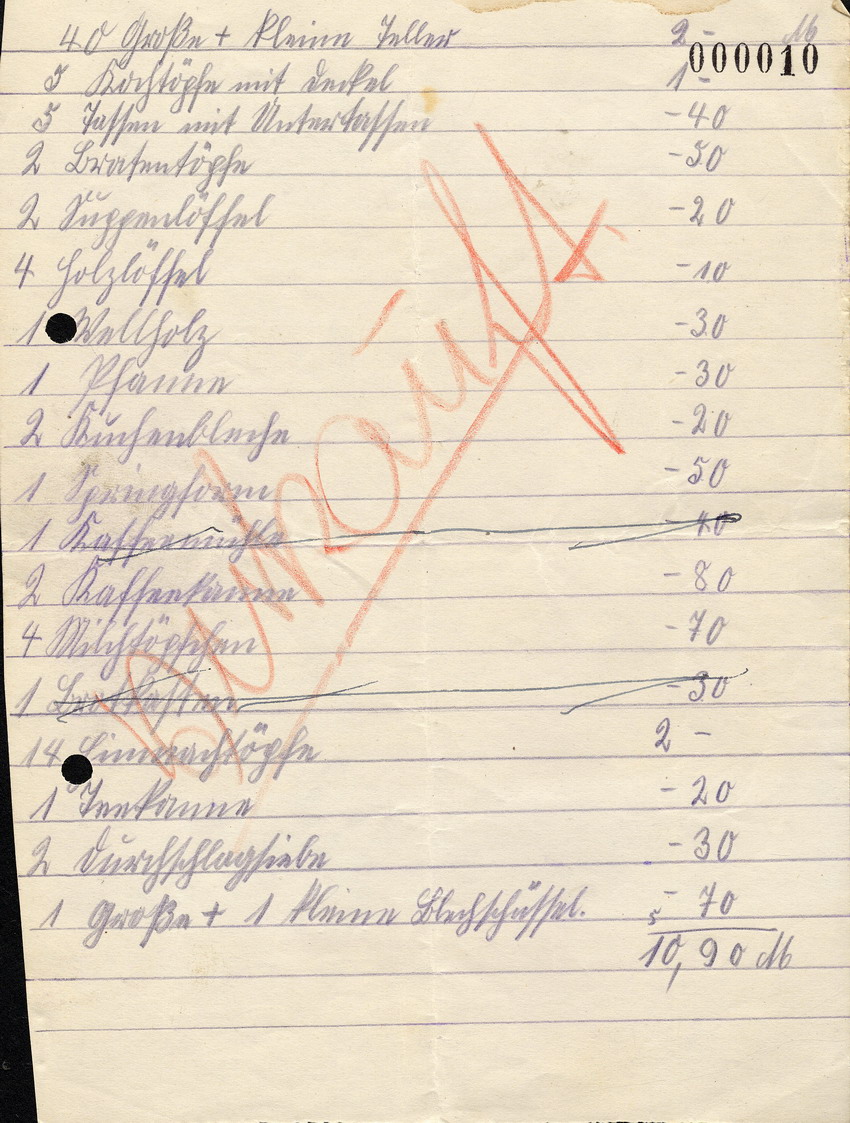 40 Große + kleine Teller 2 - M
000010
5 Kochtöpfe mit Deckel 1 -
5 Tassen mit Untertassen - 40
2 Bratentöpfe - 50
2 Suppenlöffel - 20
4 Holzlöffel - 10
1 Wellholz - 30
1 Pfanne - 30
2 Kuchenbleche - 20
1 Springform - 50
1 Kaffeemühle - 40
2 Kaffeekanne - 80
4 Milchtöpfchen - 70
1 Brotkasten - 30
14 Einmachtöpfe 2 -
1 Teekanne - 20
2 Durchschlagsiebe - 30
1 Große + 1 kleine Blechschüssel. - 70
5
10,90 M
Verkauft